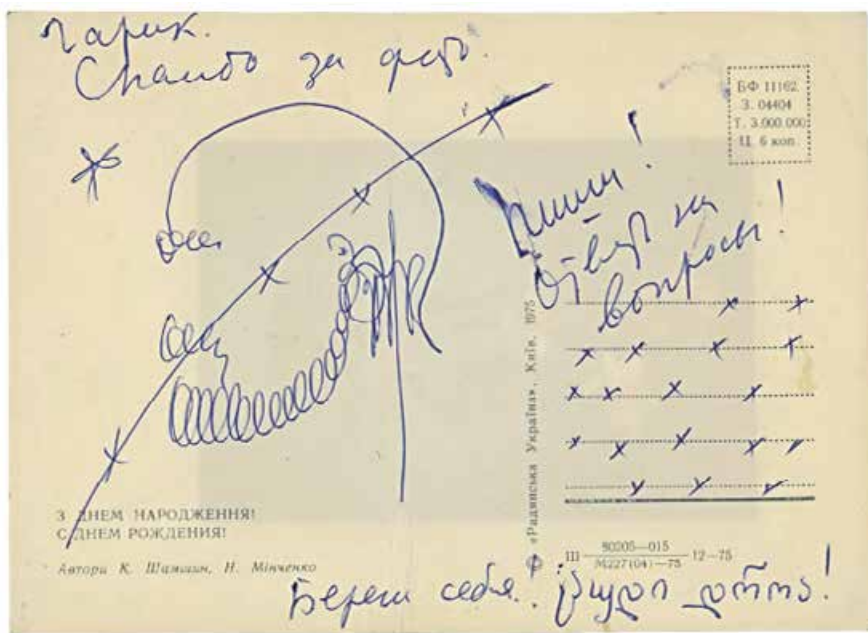 Гарик.
Спасибо за фото.
БФ 11162.
З. 04404
Т. 3.000.000
Ц. 6 коп.
Пиши!
Ответь на
вопросы!
«Радянська Україна», Київ, 1975
З ДНЕМ НАРОДЖЕННЯ!
С ДНЕМ РОЖДЕНИЯ!
Автори К. Шамшин, Н. Мінченко
Ш 80205—015 12—75
М227(04)—75
Береги себя! ცუდი დროა!